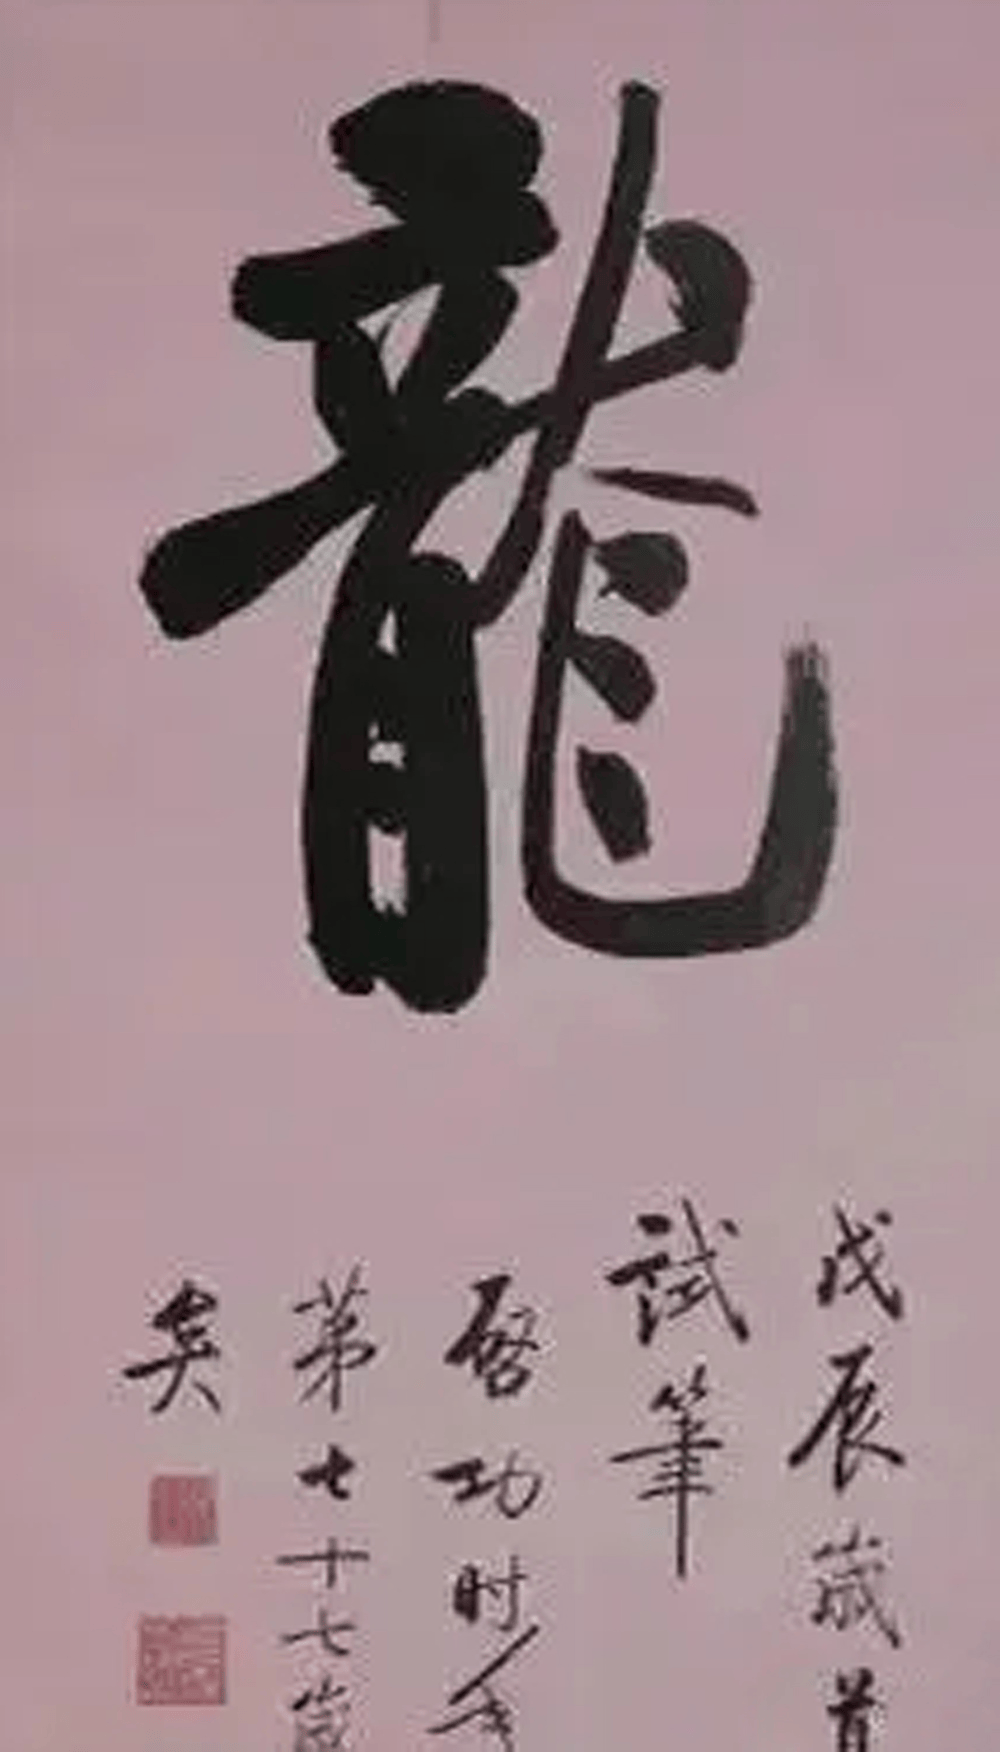 龍
戊辰歲首
試筆
啓功时年
第七十七歲
矣